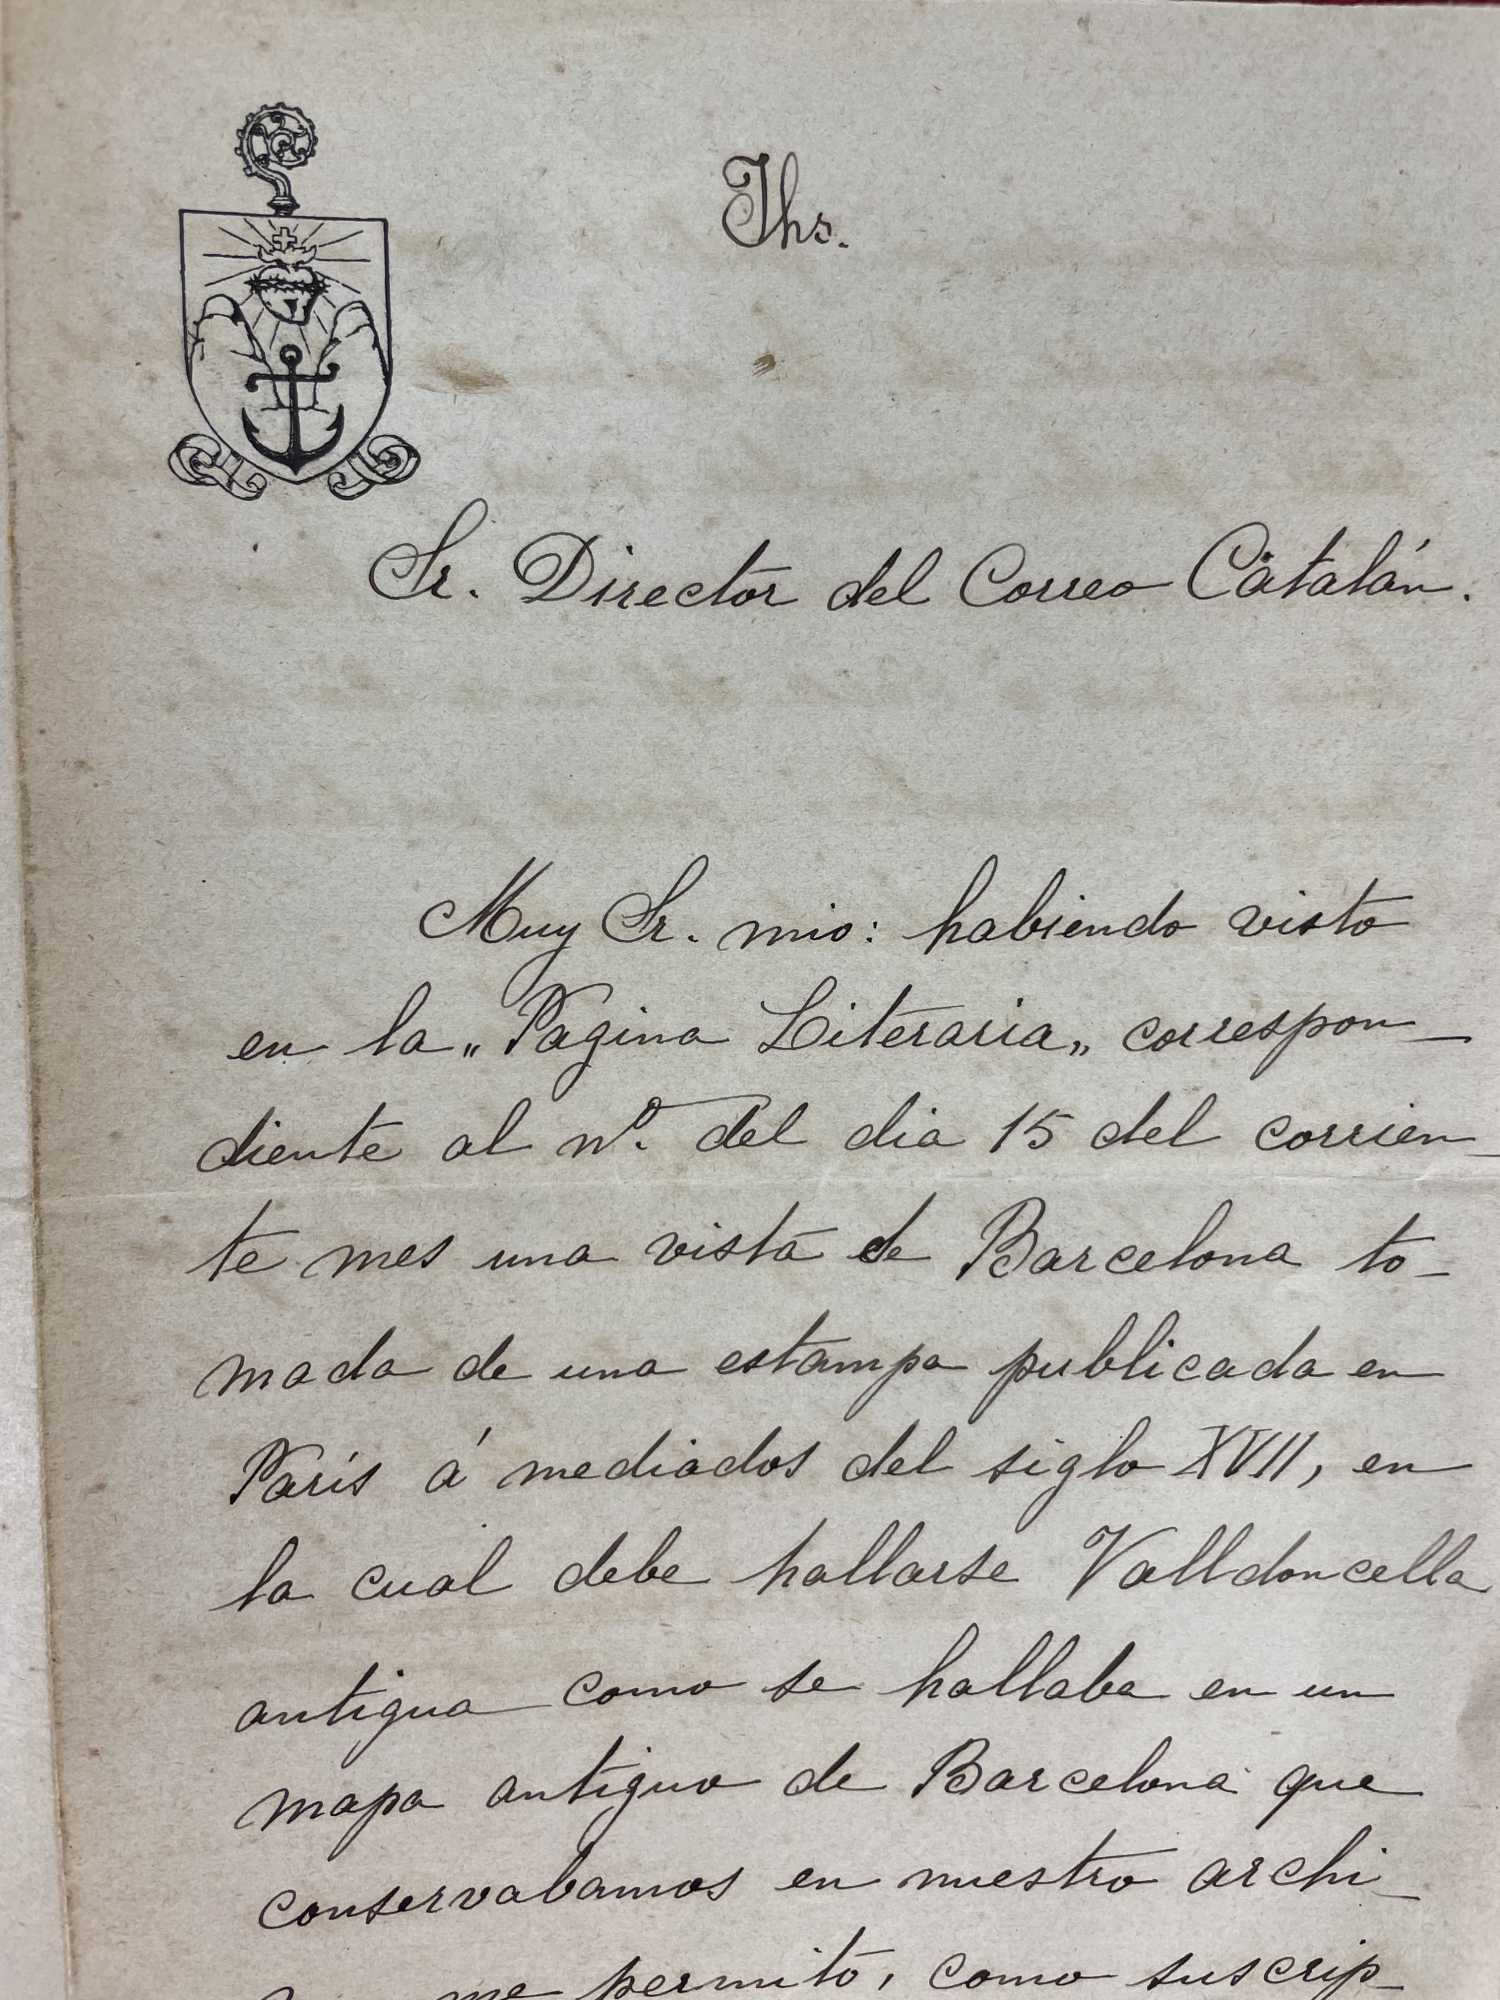 Jhs.
Sr. Director del Correo Catalán.
Muy Sr. mio: habiendo visto
en la „Pagina Literaria„ correspon-
diente al nº. del dia 15 del corrien-
te mes una vista de Barcelona to-
mada de una estampa publicada en
París á mediados del siglo XVII, en
la cual debe hallarse Valldoncella
antigua como se hallaba en un
mapa antiguo de Barcelona que
conservabamos en nuestro archi-
me permito, como suscrip-